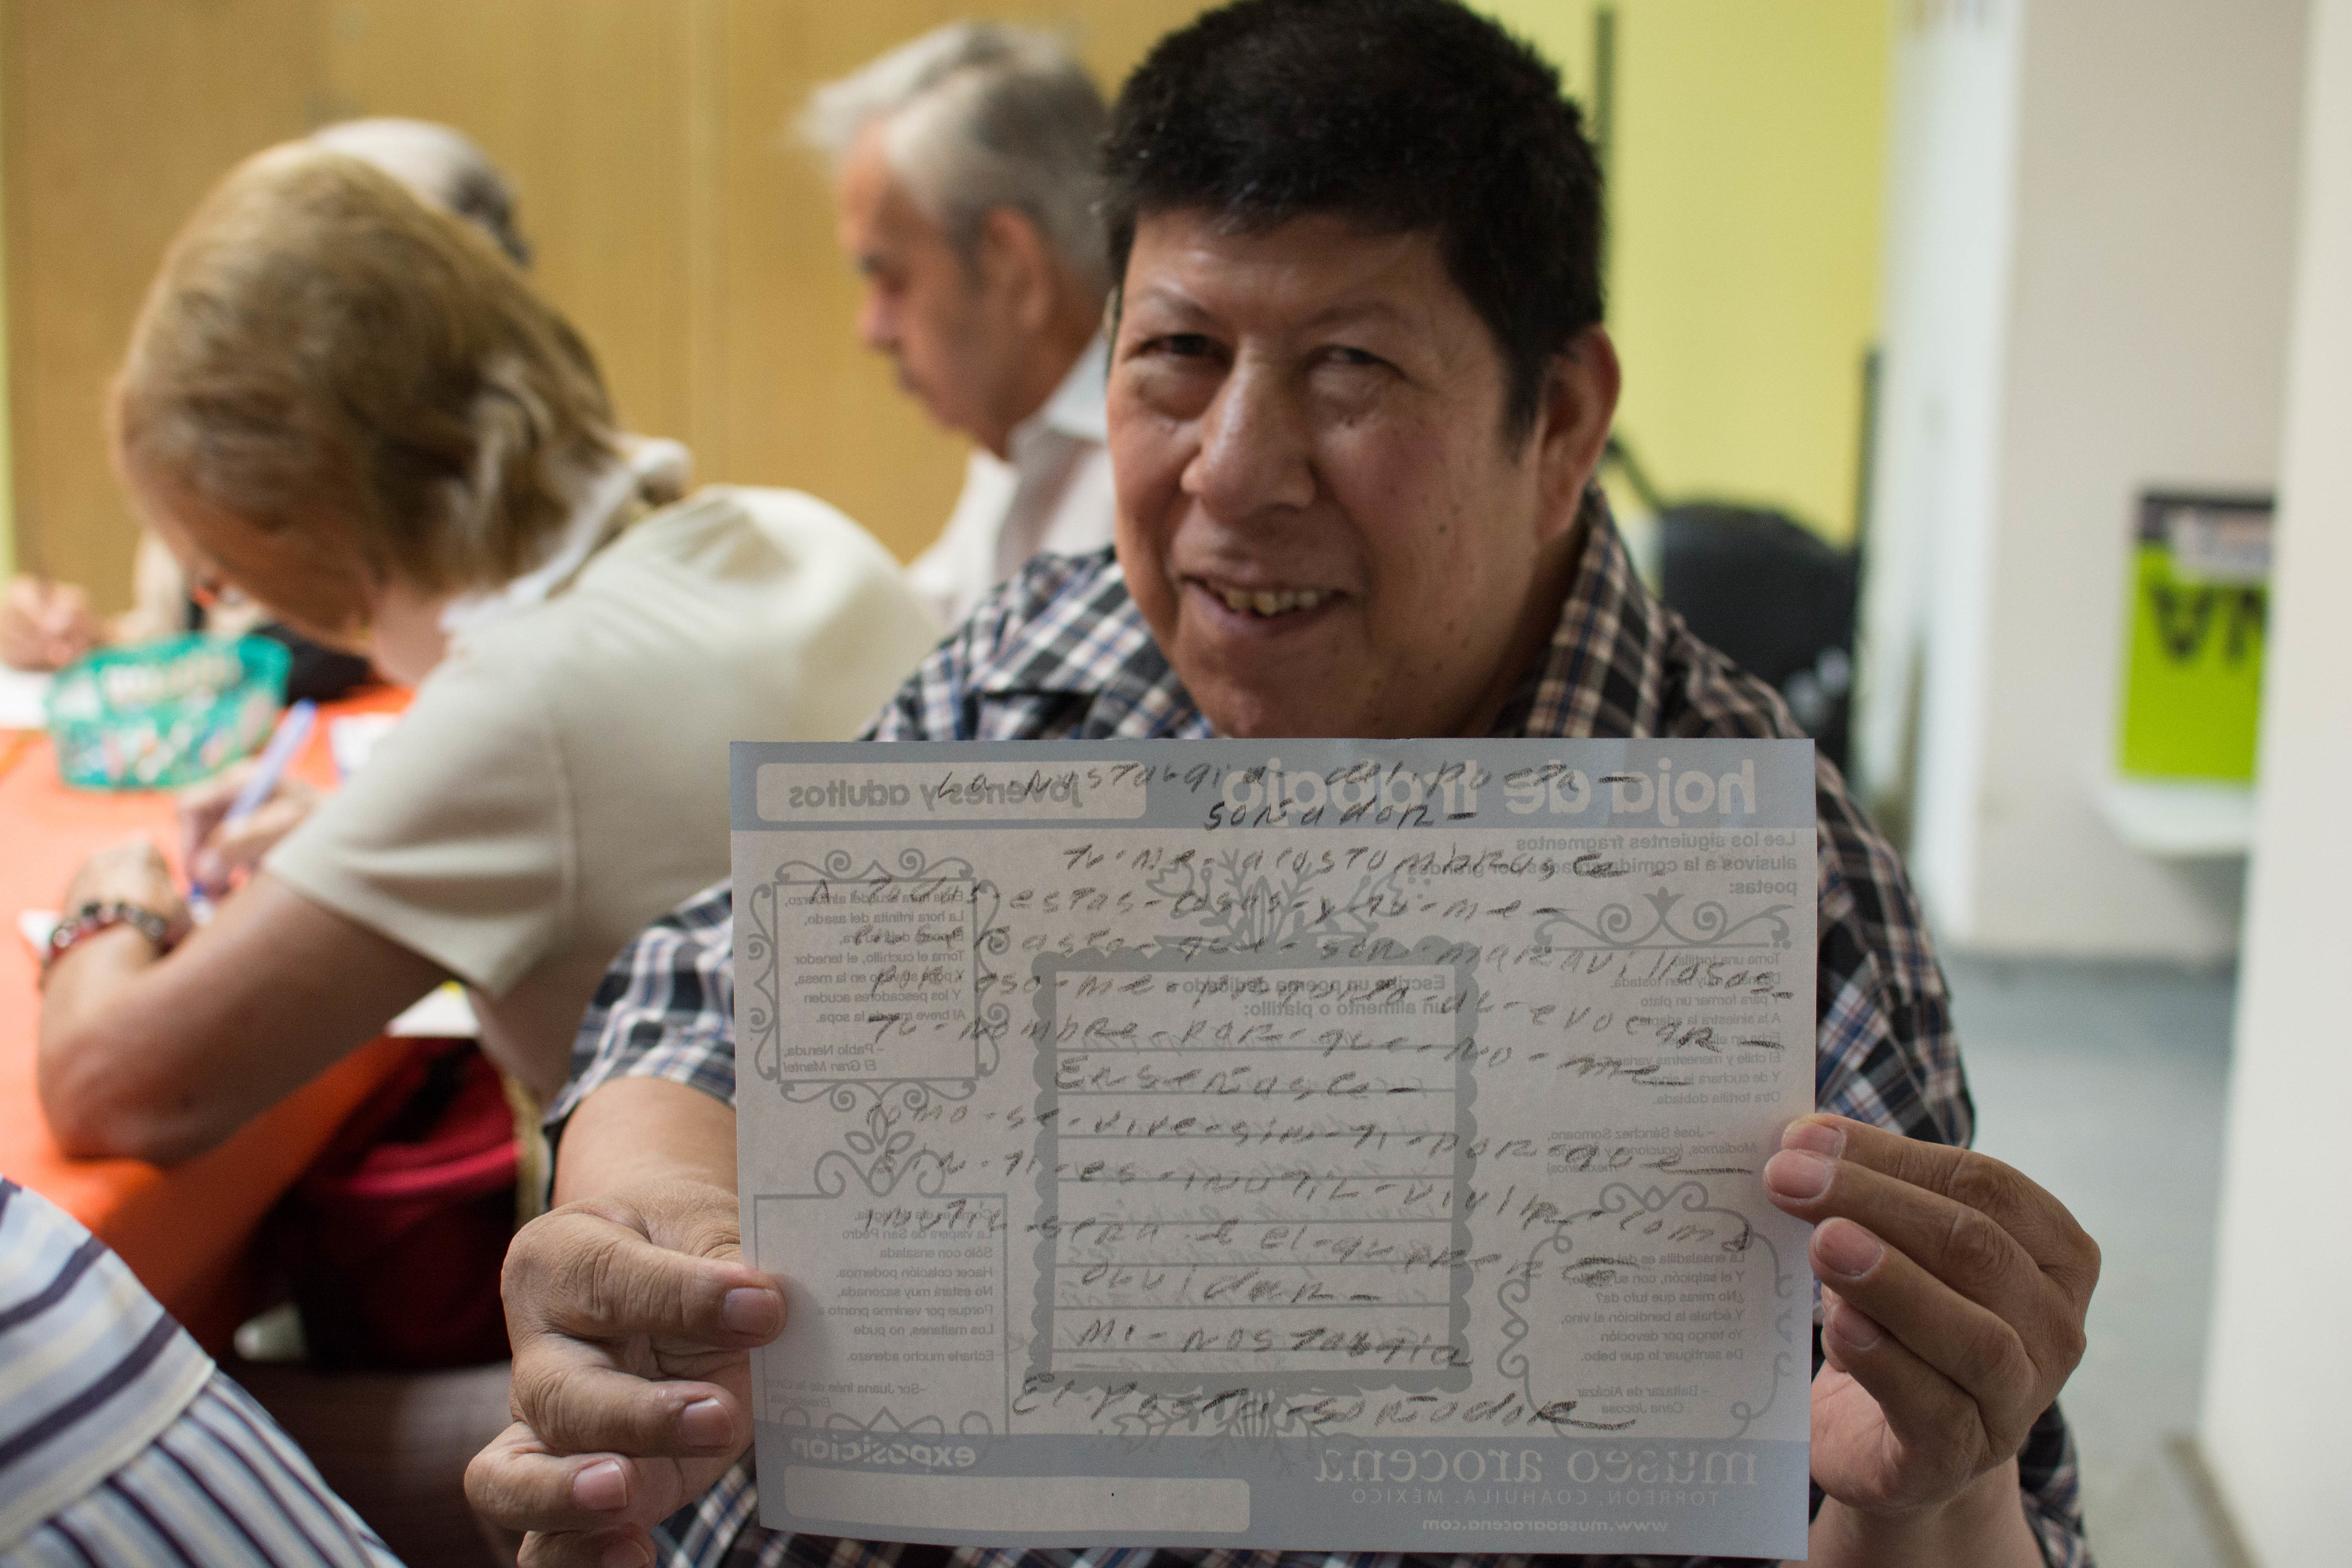 La Nostalgia del poeta -
soñador -
tu - me - acostumbraste -
A todas - estas - cosas - y tu - me -
enseñaste - que - son - maravillosas -
por eso - me - de - evocar -
Tu - nombre - por - que - no - me -
Enseñaste -
como - se - vive - sin - ti - por - que
sin - ti - es - inutil - vivir - como
inutil - sera - el
olvidar -
Mi - Nostalgia
El Poeta - soñador
hoja de trabajo
jóvenes y adultos
Lee los siguientes fragmentos
alusivos a la comida por grandes
poetas:
La hora infinita del asado,
Toma el cuchillo, el tenedor
en la mesa,
Y los pescadores acuden
Al breve de la sopa.
- Pablo Neruda,
El Gran Mantel
Escribe un poema dedicado
un alimento o platillo:
Toma una tortilla
muy bien tostada,
Y para formar un plato
A la siniestra la
El chile y menestras
Y de cuchara
Otra tortilla doblada.
- José Sánchez Somoano,
Modismos, locuciones y
mexicanos
La víspera de San Pedro
Sólo con ensalada
Hacer colación podemos.
No estará muy sazonada,
Porque por venirme pronto a
Los maitines, no pude
Echarle mucho aderezo.
-Sor Juana Inés de la
La ensaladilla es del
Y el salpicón, con su
¿No miras que tufo da?
Y échale la bendición al vino,
Yo tengo por devoción
De santiguar lo que bebo.
- Baltazar de Alcázar
Cena Jocosa
exposición
museo arocena
TORREÓN, COAHUILA, MÉXICO
www.museoarocena.com